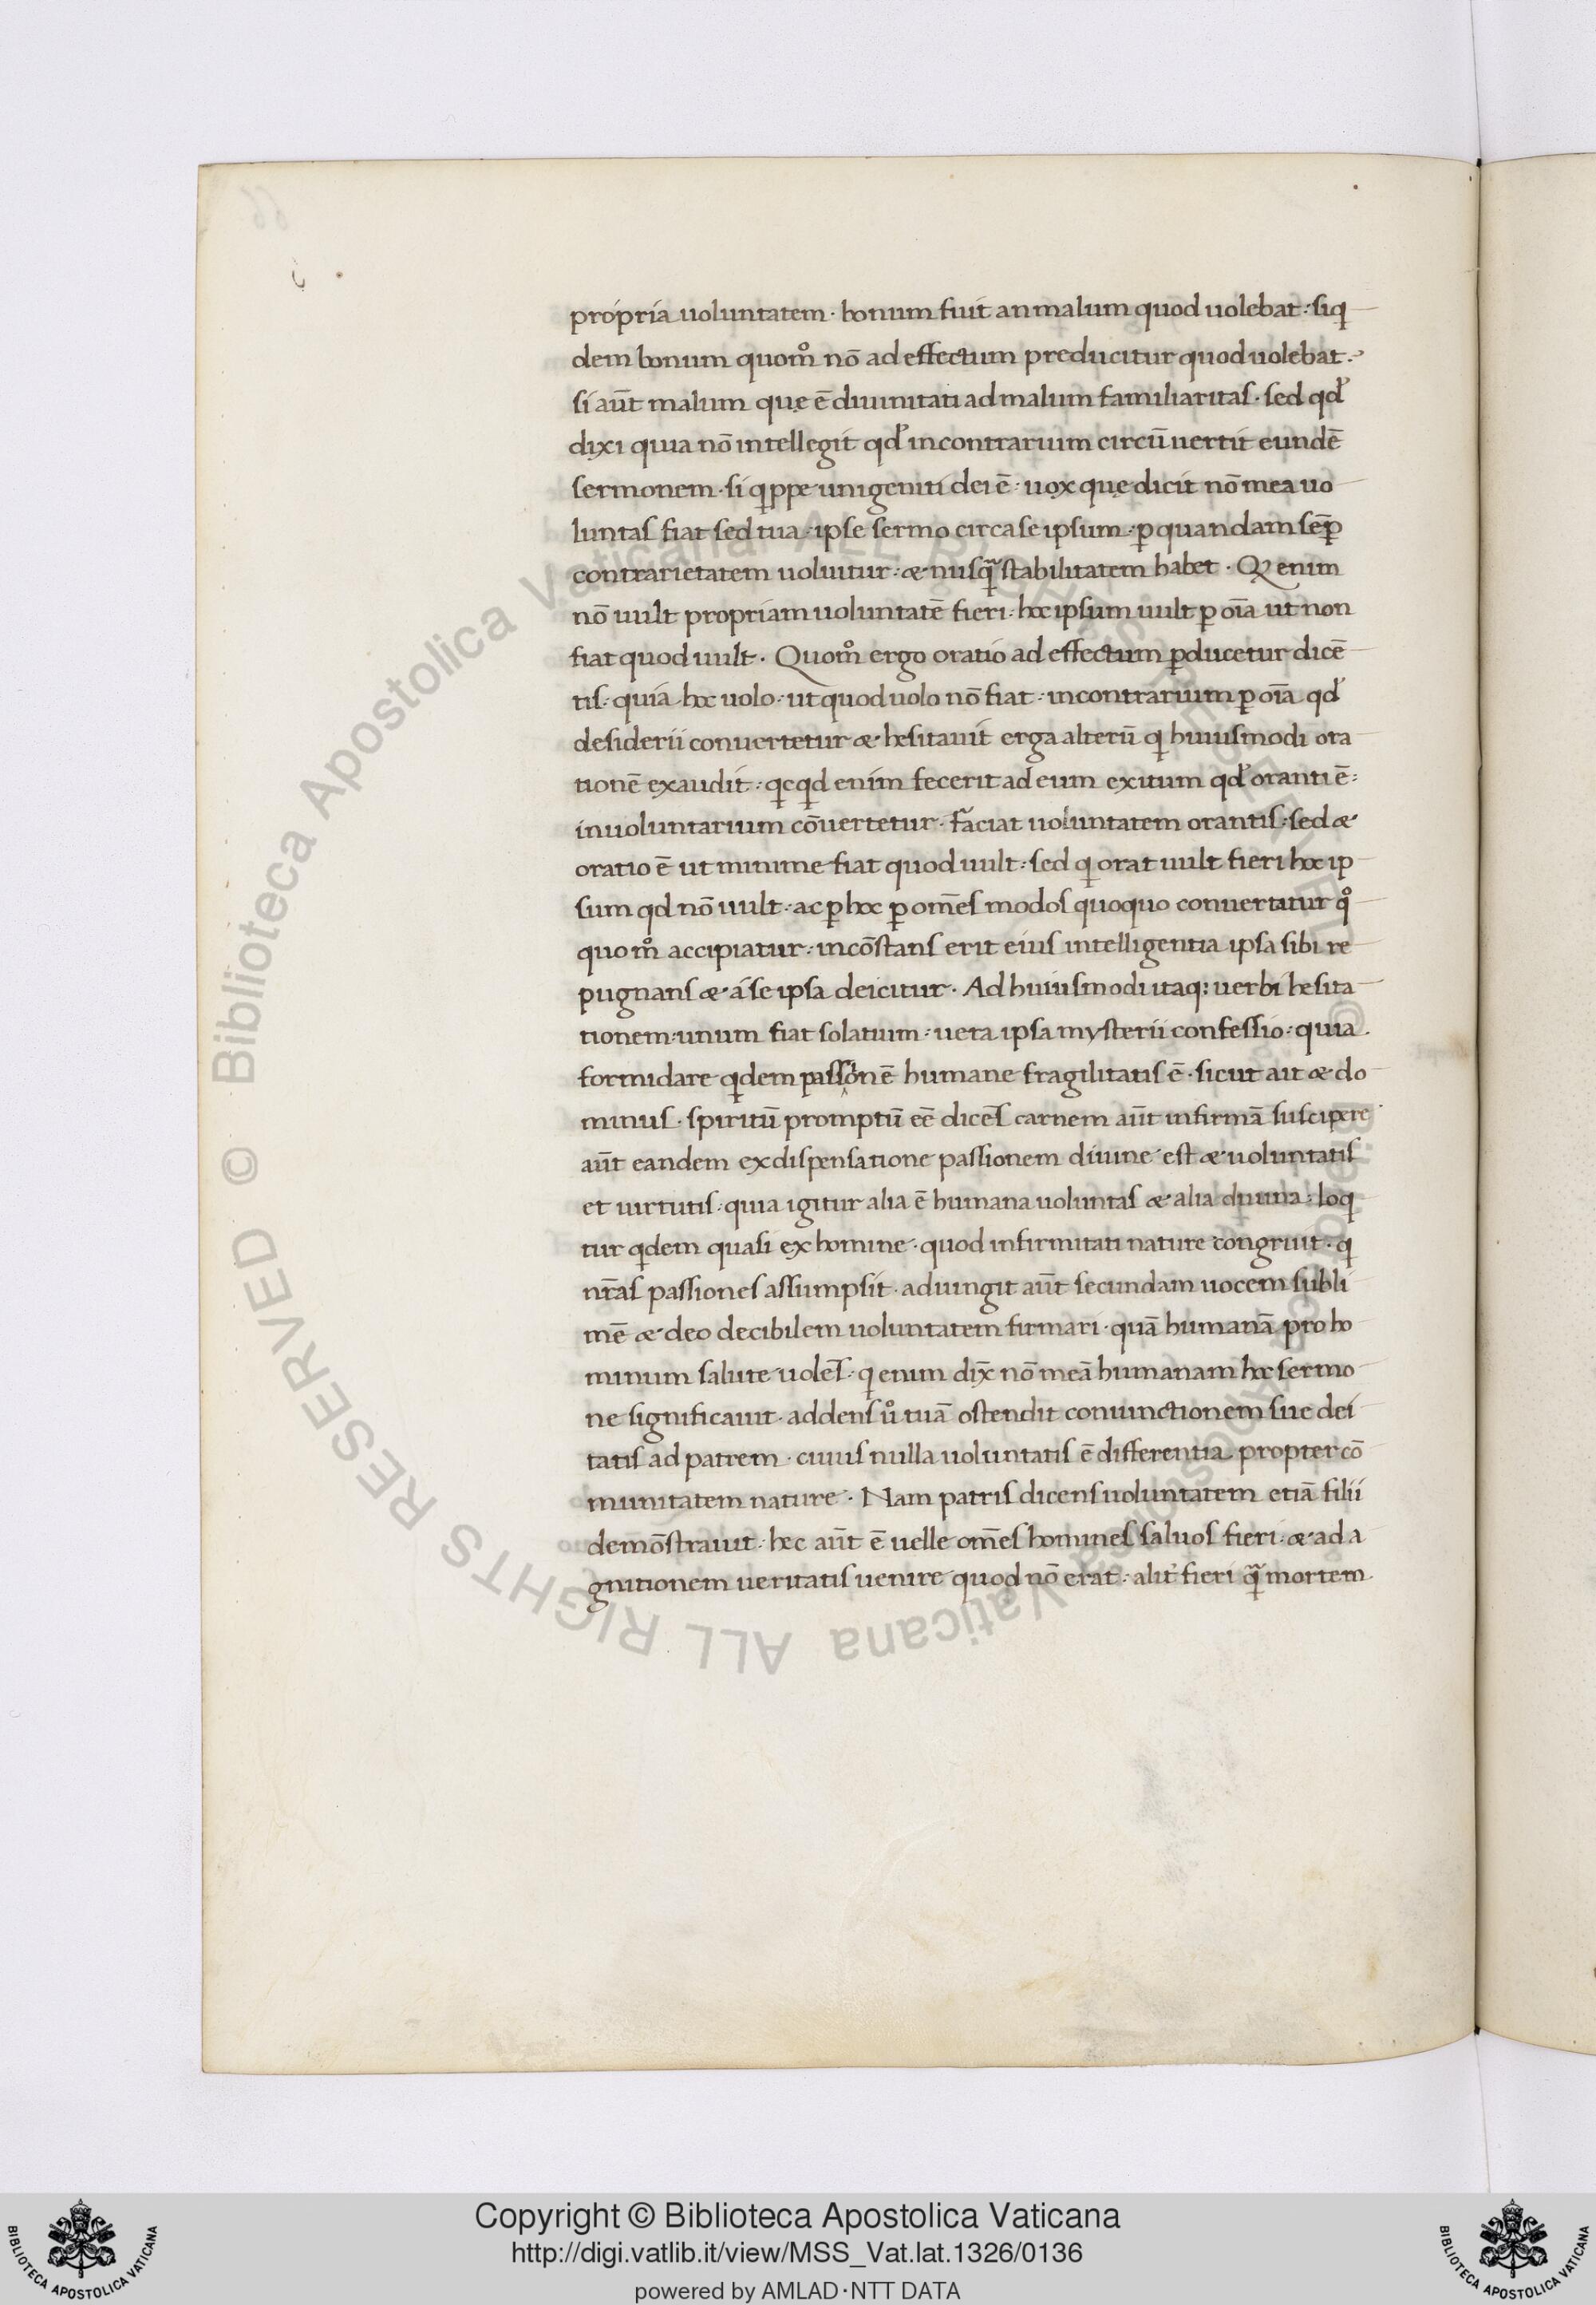 propria uoluntatem · bonum fuit an malum quod uolebat : siq
dem bonum quom̊ nō ad effectum preducitur quod uolebat .
si aūt malum quę ē diuinitati ad malum familiaritas · sed qd̓
dixi quia nō intellegit qd̓ in contrarium circūuertit eundē
sermonem · si qppe unigeniti dei ē : uox quę dicit nō mea uo
luntas fiat sed tua : ipse sermo circa se ipsum : ꝑ quandam sēꝑ
contrarietatem uoluitur : & nusqᷓ stabilitatem habet · Q enim
nō uult propriam uoluntatē fieri · hoc ipsum uult ꝑ oīa ut non
fiat quod uult · Quom̊ ergo oratio ad effectum ꝑducetur dicē
tis : quia hoc uolo · ut quod uolo nō fiat : in contrarium ꝑ oīa qd̓
desiderii conuertetur & hesitauit erga alterū q huiusmodi ora
tionē exaudit : qcqd enim fecerit ad eum exitum qd̓ oranti ē :
inuoluntarium cōuertetur · faciat uoluntatem orantis : sed &
oratio ē ut minime fiat quod uult : sed q orat uult fieri hoc ip
sum qd nō uult : ac ꝑ hoc ꝑ om̄es modos quoquo conuertatur q̊
quom̊ accipiatur : incōstans erit eius intelligentia ipsa sibi re
pugnans & á se ipsa deicitur · Ad huiusmodi itaq: uerbi hesita
tionem : unum fiat solatium : uera ipsa mysterii confessio : quia
formidare qdem passionē humane fragilitatis ē · sicut ait & do
minus · spiritū promptū eē dicēs carnem aūt infirmā suscipere
aūt eandem ex dispensatione passionem diuine est & uoluntatis
et uirtutis : quia igitur alia ē humana uoluntas & alia diuina : loq
tur qdem quasi ex homine · quod infirmitati nature congruit · q
nr̄as passiones assumpsit · adiungit aūt secundam uocem subli
mē & deo decibilem uoluntatem firmari · quā humanā pro ho
minum salute uolēs : q enim dix̄ nō meā humanam hoc sermo
ne significauit · addens ů tuā ostendit coniunctionem sue dei
tatis ad patrem · cuius nulla uoluntatis ē differentia propter cō
munitatem nature · Nam patris dicens uoluntatem etiā filii
demōstrauit · hec aūt ē uelle om̄es homines saluos fieri · & ad a
gnitionem ueritatis uenire quod nō erat : alit̓ fieri qᷓ mortem
© Biblioteca Apostolica Vaticana ALL RIGHTS RESERVED © Biblioteca Apostolica Vaticana ALL RIGHTS RESERVED
Copyright © Biblioteca Apostolica Vaticana
http://digi.vatlib.it/view/MSS_Vat.lat.1326/0136
powered by AMLAD·NTT DATA
BIBLIOTECA APOSTOLICA VATICANA
BIBLIOTECA APOSTOLICA VATICANA